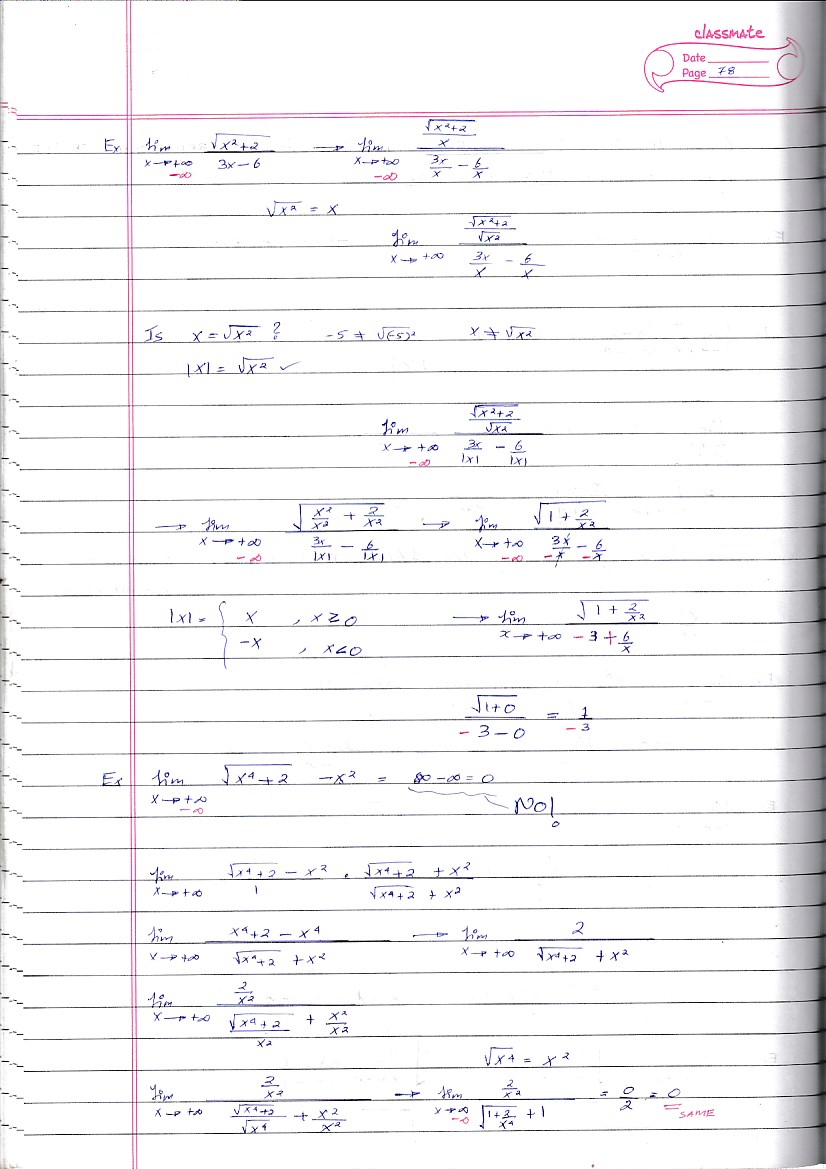 classmate
Date
Page 78
Ex lim x→+∞ -∞ √(x²+2) / (3x-6) → lim x→+∞ -∞ (√(x²+2) / x) / (3x/x - 6/x)
√x² = x
lim x→+∞ (√(x²+2) / √x²) / (3x/x - 6/x)
Is x = √x² ? -5 ≠ √(-5)² x ≠ √x²
|x| = √x² ✓
lim x→+∞ -∞ (√(x²+2) / √x²) / (3x/|x| - 6/|x|)
→ lim x→+∞ -∞ √(x²/x² + 2/x²) / (3x/|x| - 6/|x|) → lim x→+∞ -∞ √(1 + 2/x²) / (3x/-x - 6/-x)
|x| = { x , x≥0
-x , x<0
→ lim x→+∞ √(1 + 2/x²) / (-3 + 6/x)
√(1+0) / (-3-0) = 1/-3
Ex lim x→+∞ -∞ √(x⁴+2) - x² = ∞-∞ = 0
No!
lim x→+∞ (√(x⁴+2) - x²) / 1 · (√(x⁴+2) + x²) / (√(x⁴+2) + x²)
lim x→+∞ (x⁴+2-x⁴) / (√(x⁴+2) + x²) → lim x→+∞ 2 / (√(x⁴+2) + x²)
lim x→+∞ (2/x²) / (√(x⁴+2)/x² + x²/x²)
√x⁴ = x²
lim x→+∞ (2/x²) / (√(x⁴+2)/√x⁴ + x²/x²) → lim x→∞ -∞ (2/x²) / (√(1+2/x⁴) + 1) = 0/2 = 0
SAME